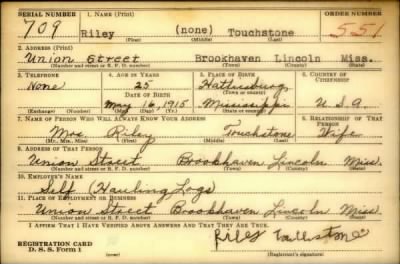 SERIAL NUMBER 1. NAME (Print) ORDER NUMBER
709 Riley (none) Touchstone 551
(First) (Middle) (Last)
2. ADDRESS (Print)
Union Street Brookhaven Lincoln Miss.
(Number and street or R. F. D. number) (Town) (County) (State)
3. TELEPHONE 4. AGE IN YEARS 5. PLACE OF BIRTH 6. COUNTRY OF CITIZENSHIP
None 25 Hattiesburg
DATE OF BIRTH (Town or county)
May 16, 1915 Mississippi U.S.A.
(Exchange) (Number) (Mo.) (Day) (Yr.) (State or country)
7. NAME OF PERSON WHO WILL ALWAYS KNOW YOUR ADDRESS 8. RELATIONSHIP OF THAT PERSON
Mrs. Riley Touchstone Wife
(Mr., Mrs., Miss) (First) (Middle) (Last)
9. ADDRESS OF THAT PERSON
Union Street Brookhaven Lincoln Miss.
(Number and street or R. F. D. number) (Town) (County) (State)
10. EMPLOYER'S NAME
Self (Hauling Logs)
11. PLACE OF EMPLOYMENT OR BUSINESS
Union Street Brookhaven Lincoln Miss
(Number and street or R. F. D. number) (Town) (County) (State)
I AFFIRM THAT I HAVE VERIFIED ABOVE ANSWERS AND THAT THEY ARE TRUE.
REGISTRATION CARD Riley
D. S. S. Form 1 (Registrant's signature)